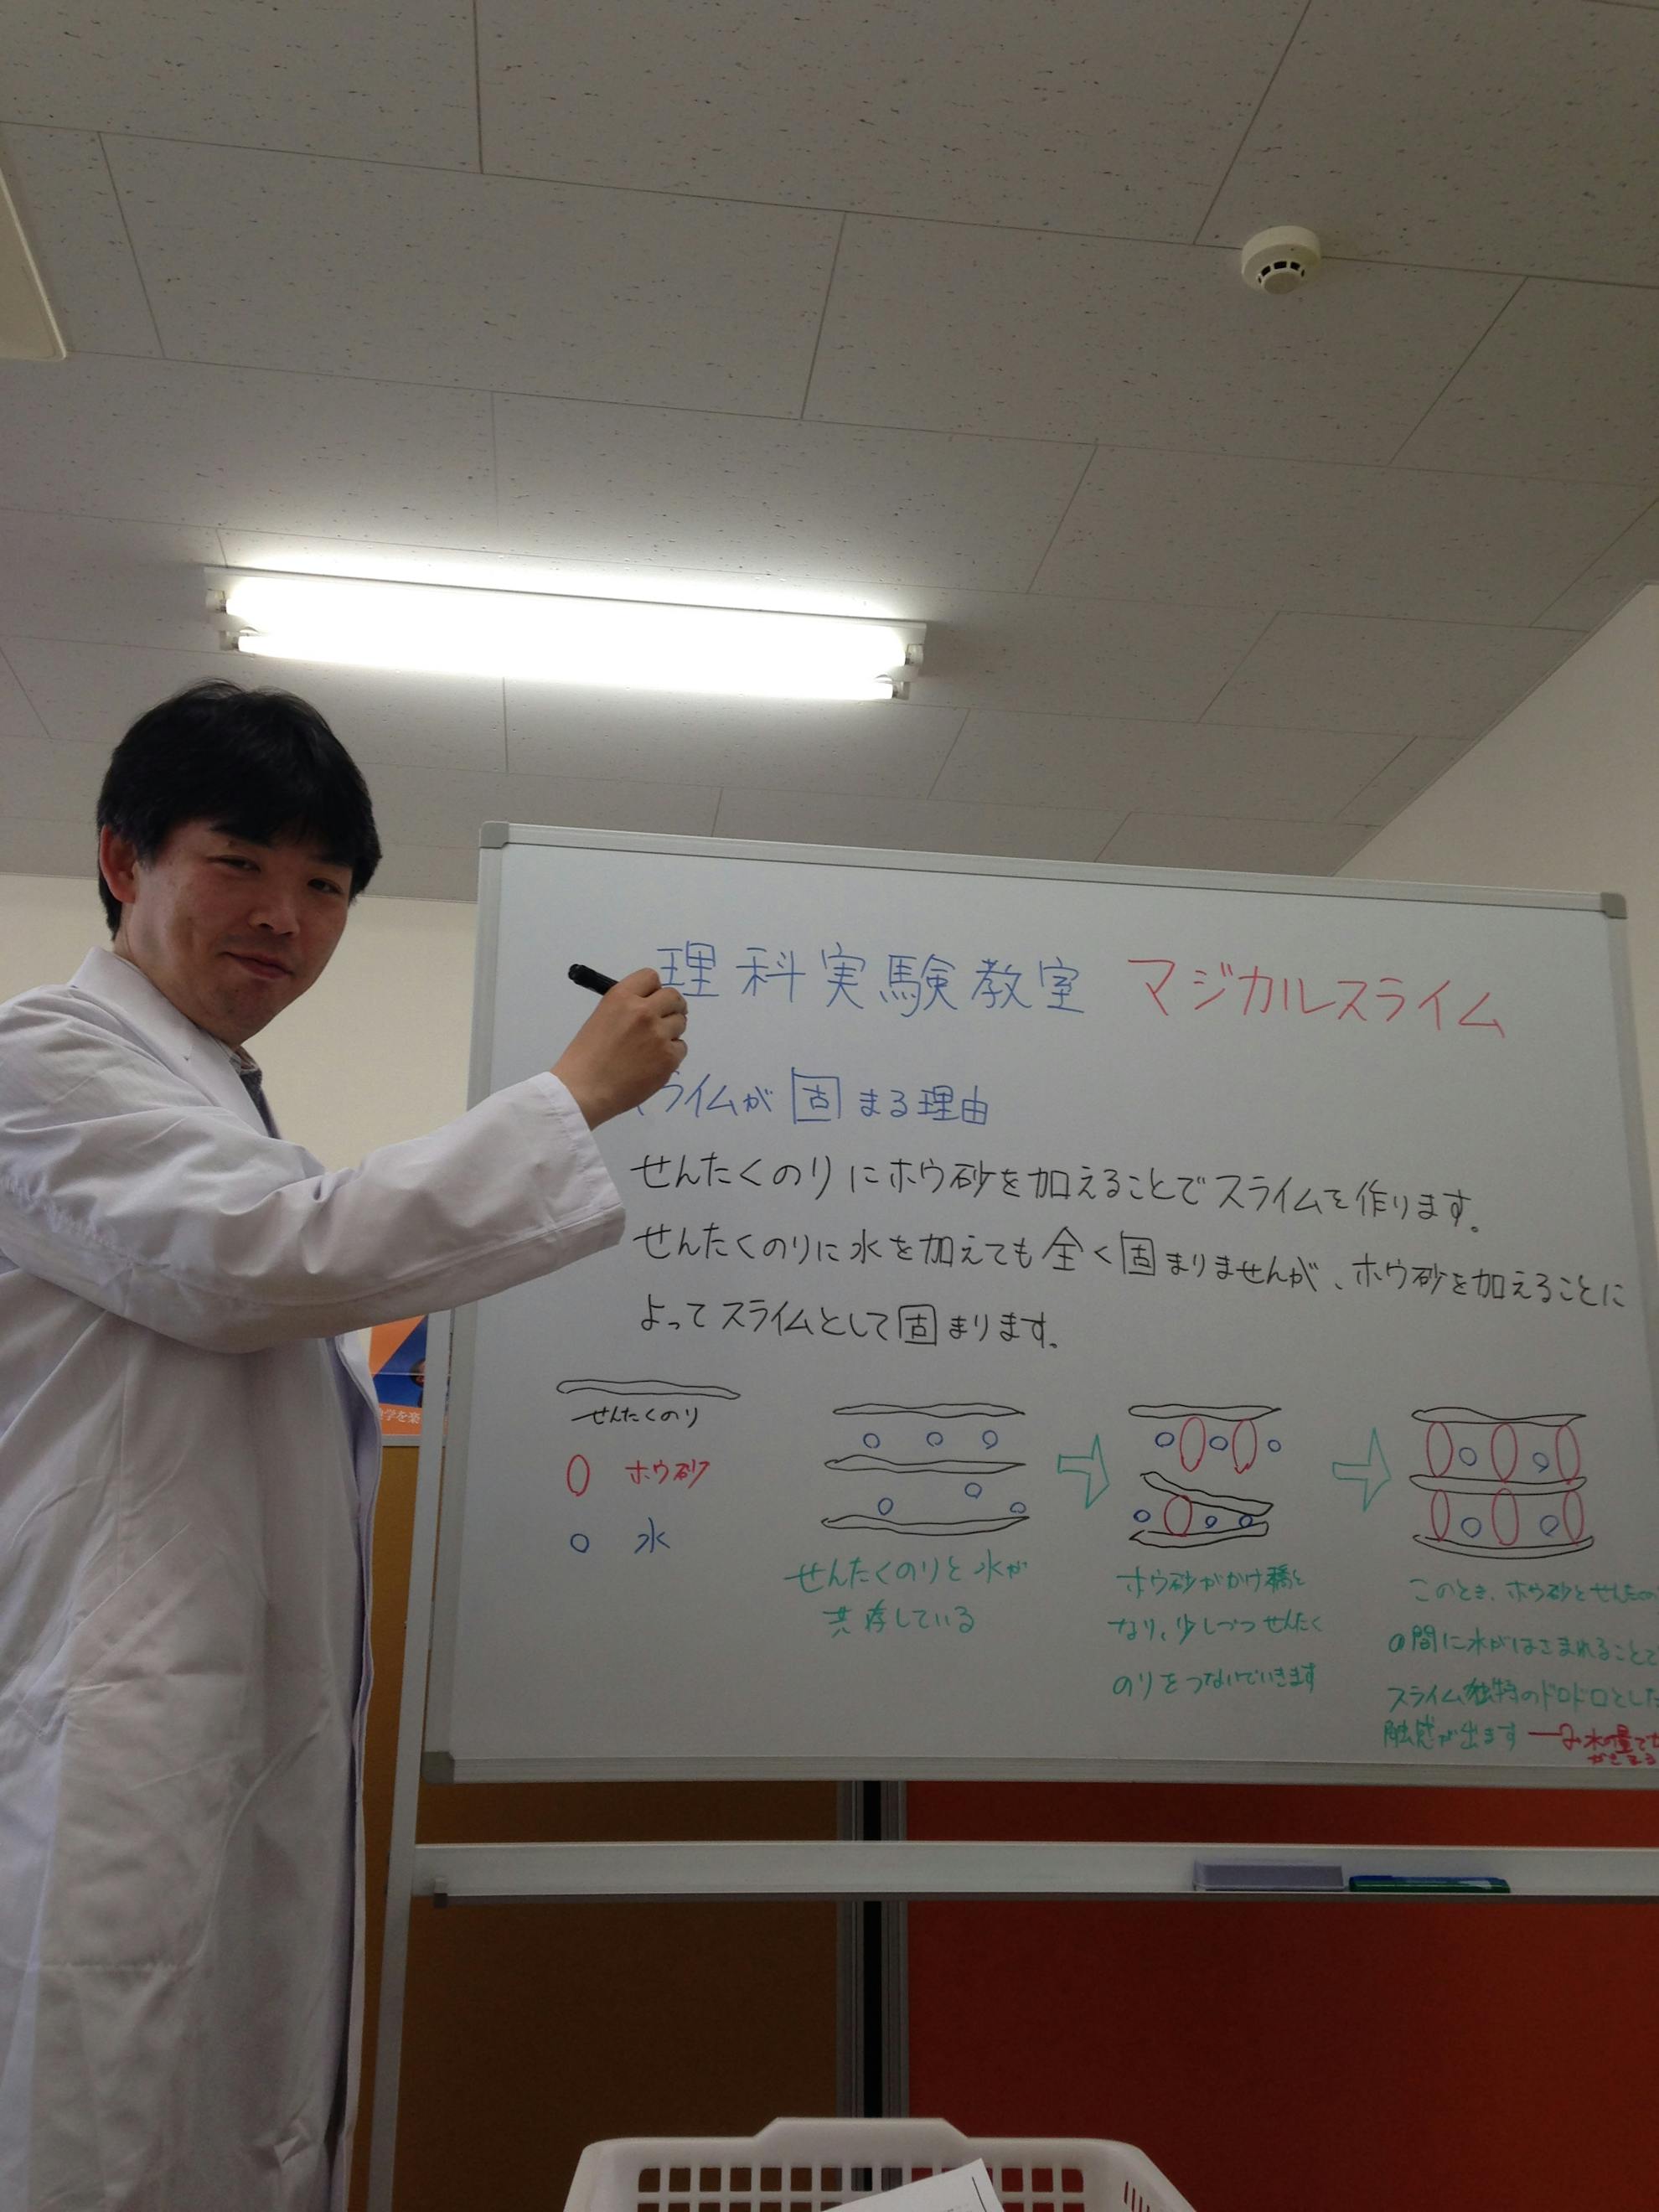 理科実験教室 マジカルスライム
ライムが固まる理由
せんたくのりにホウ砂を加えることでスライムを作ります。
せんたくのりに水を加えても全く固まりませんが、ホウ砂を加えることに
よってスライムとして固まります。
せんたくのり
ホウ砂
水
せんたくのりと水が
共存している
ホウ砂がかけ橋と
なり、少しづつせんたく
のりをつないでいきます
このとき、ホウ砂とせんたく
の間に水がはさまれることで
スライム独特のドロドロとした
触感が出ます
学を楽